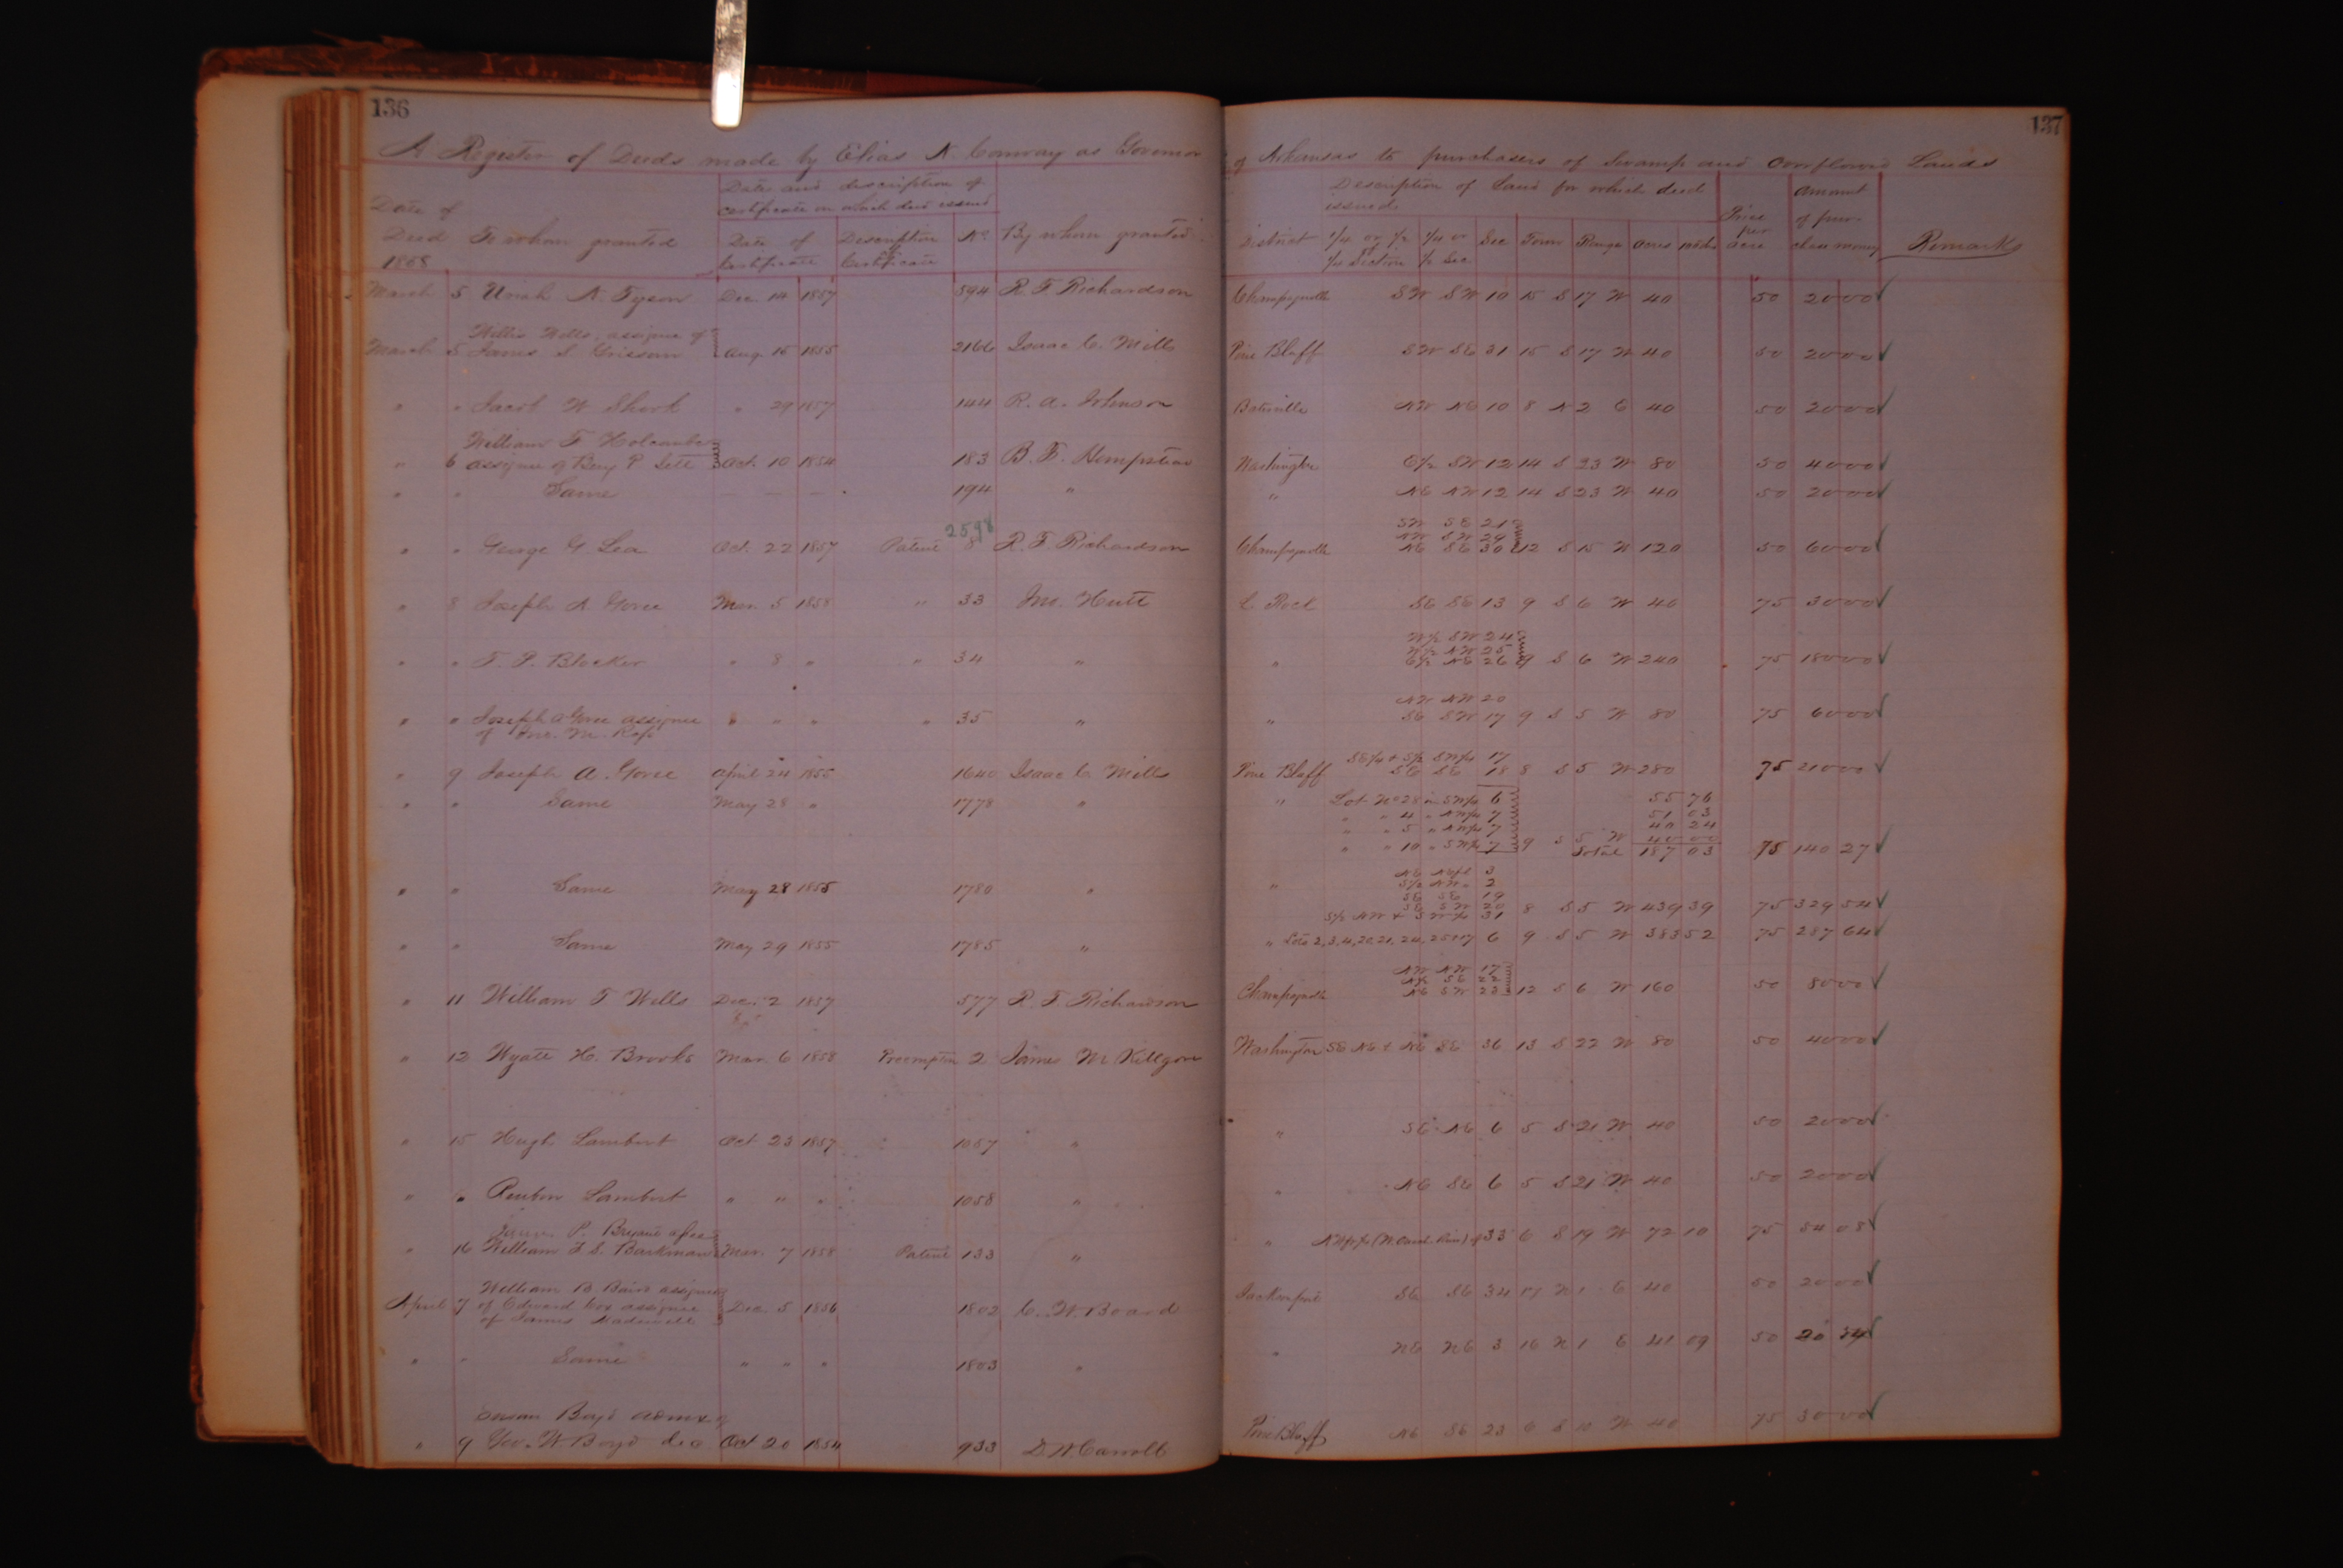 136
137
A Register of Deeds made by Elias N. Conway as Governor of Arkansas to purchasers of Swamp and overflowed Lands
Date of Deed 1858
To whom granted
Date and description of certificate on which deed issued
Date of Certificate
Description of Certificate
No.
By whom granted
Description of Land for which deed issued
District
1/4 or 1/2 1/4 Section
1/4 or 1/2 Sec
Sec
Town
Range
Acres
100ths
Price per acre
Amount of purchase money
Remarks
March 5 Uriah N. Tyson Dec. 14 1857 594 R. F. Richardson Champagnolle SW SW 10 15 S 17 W 40 50 20 00 ✓
Willis Wells, assignee of
March 5 James S. Crisson Aug. 15 1855 2166 Isaac C. Mills Pine Bluff SW SE 31 15 S 17 W 40 50 20 00 ✓
" " Jacob W Shirk " 29 1857 144 R. A. Johnson Batesville NW NE 10 8 N 2 E 40 50 20 00 ✓
William F Holcombe
" 6 assignee of Benj P Jett Oct. 10 1854 183 B. F. Hempstead Washington E/2 SW 12 14 S 23 W 80 50 40 00 ✓
" " Same — — — 194 " " NE NW 12 14 S 23 W 40 50 20 00 ✓
2598
SW SE 21
NW SW 29
" " George G. Lea Oct. 22 1857 Patent 8 R. F. Richardson Champagnolle NE SE 30 12 S 15 W 120 50 60 00 ✓
" 8 Joseph A Goree Mar. 5 1858 " 33 Jno. Hutt L Rock SE SE 13 9 S 6 W 40 75 30 00 ✓
W/2 SW 24
W/2 NW 25
" " T. P. Blocker " 8 " " 34 " " E/2 NE 26 9 S 6 W 240 75 180 00 ✓
NW NW 20
" " Joseph A Goree assignee " " " " 35 " " SE SW 17 9 S 5 W 80 75 60 00 ✓
of Jno. M. Ross
SE/4 + S/2 SW/4 17
" 9 Joseph A. Goree April 24 1855 1640 Isaac C Mills Pine Bluff SE SE 18 8 S 5 W 280 75 210 00 ✓
" " Same May 28 " 1778 " " Lot No 28 in SW/4 6 55 76
" " 4 " NW/4 7 51 03
" " 5 " NW/4 7 40 24
" " 10 " SW/4 7 9 S 5 W 40 00
Total 187 03 75 140 27 ✓
NE NE/4 3
S/2 NW " 2
" " Same May 28 1855 1780 " " SE SE 19
SE SW 20 8 S 5 W 439 39 75 329 54 ✓
S/2 NW + SW/4 31
" " Same May 29 1855 1785 " " Lots 2, 3, 4, 20, 21, 24, 25 & 17 6 9 S 5 W 383 52 75 287 64 ✓
NW NW 17
" 11 William T Wells Dec. 2 1857 577 R. F. Richardson Champagnolle NE SW 22 12 S 6 W 160 50 80 00 ✓
" 12 Wyatt H. Brooks Mar. 6 1858 Preemption 2 James M Killgore Washington SE NE + NE SE 36 13 S 22 W 80 50 40 00 ✓
" 15 Hugh Lambert Oct 23 1857 1057 " " SE NE 6 5 S 21 W 40 50 20 00 ✓
" " Reuben Lambert " " " 1058 " " NE SE 6 5 S 21 W 40 50 20 00 ✓
P. Bryant
" 16 William F. S. Barkman Mar. 7 1858 Patent 133 " " 33 6 S 19 W 72 10 75 54 08 ✓
William B Bain assignee
April 7 of Edward Cox assignee Dec. 5 1856 1802 C. W. Board Jacksonport SE SE 34 17 N 1 E 40 50 20 00 ✓
of James
" " Same " " " 1803 " " NE NE 3 16 N 1 E 41 09 50 20 54 ✓
Susan Boyd admx of
" 9 Geo. W. Boyd dec Oct 20 1854 933 D. W. Carroll Pine Bluff NE SE 23 6 S 10 W 40 75 30 00 ✓